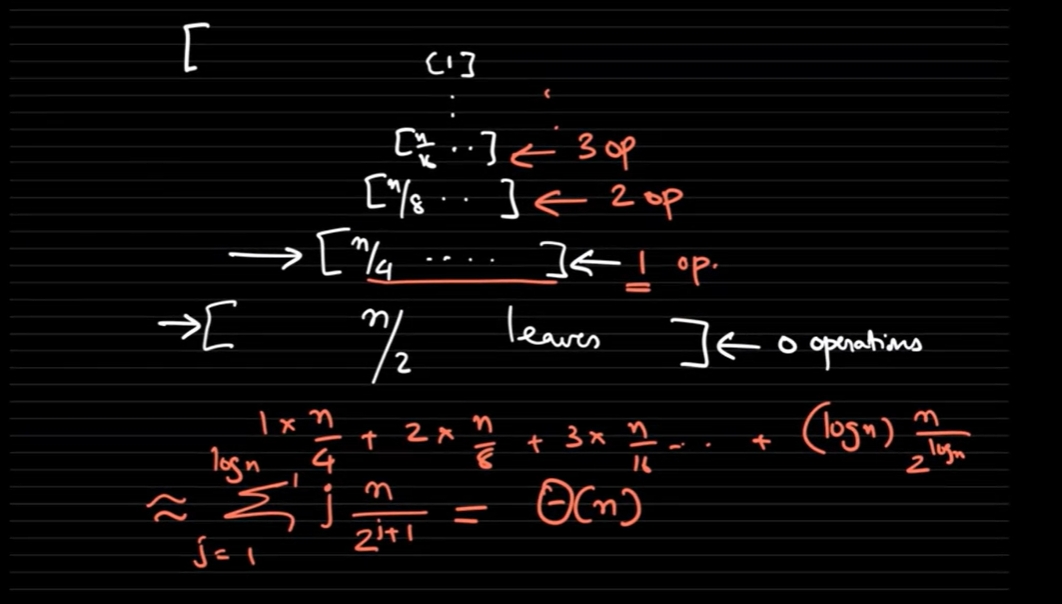 [
[1]
:
[n/16 ..] ← 3 op
[n/8 .. ] ← 2 op
→ [n/4 ..... ] ← 1 op.
→ [ n/2 leaves ] ← 0 operations
1 × n/4 + 2 × n/8 + 3 × n/16 - .. + (logn) n/2^logn
≈ ∑_{j=1}^{logn} j n/2^{j+1} = Θ(n)